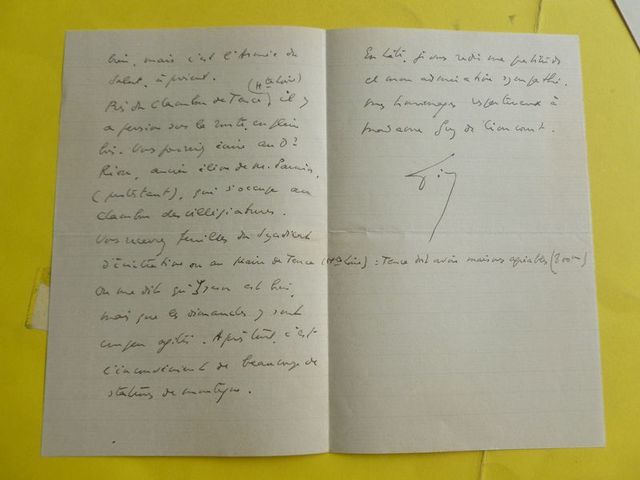 bien, mais c'est l'Armée du
Salut, à présent.
(Hte Loire)
Près du Chambon de Tence, il y
a pension sur la route, en plein
bois. Vous pourriez écrire au Dr
Riou, ancien élève de M.
(protestant), qui s'occupe au
Chambon des villégiatures.
Vous recevrez feuilles du Syndicat
d'initiative ou au Maire de Tence (Hte Loire) : Tence doit avoir maisons agréables (800m)
On me dit qu' est bien,
mais que les dimanches y sont
un peu agités. Après tout, c'est
l'inconvénient de beaucoup de
stations de montagne.
En hâte, je vous redis ma
et mon admiration sympathie,
mes hommages respectueux à
madame Guy de